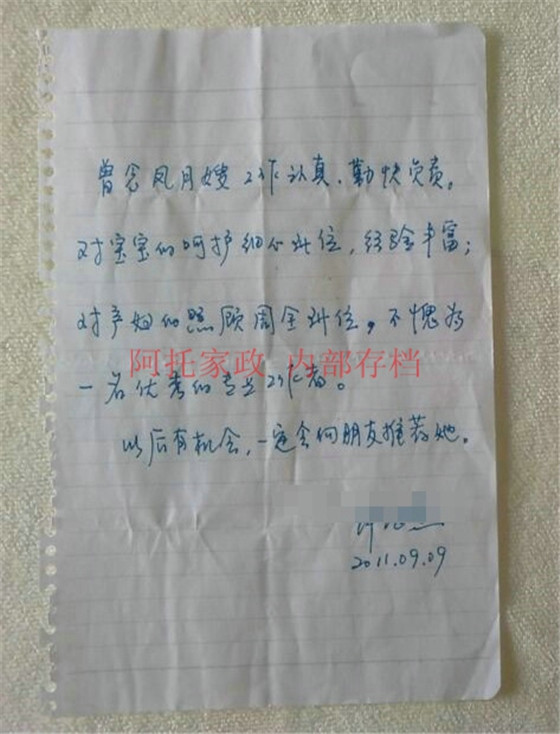 曾念凤月嫂工作认真、勤快负责。
对宝宝的呵护细心到位，经验丰富；
对产妇的照顾周全到位，不愧为
阿托家政 内部存档
一名优秀的专业工作者。
以后有机会，一定会向朋友推荐她。
2011.09.09